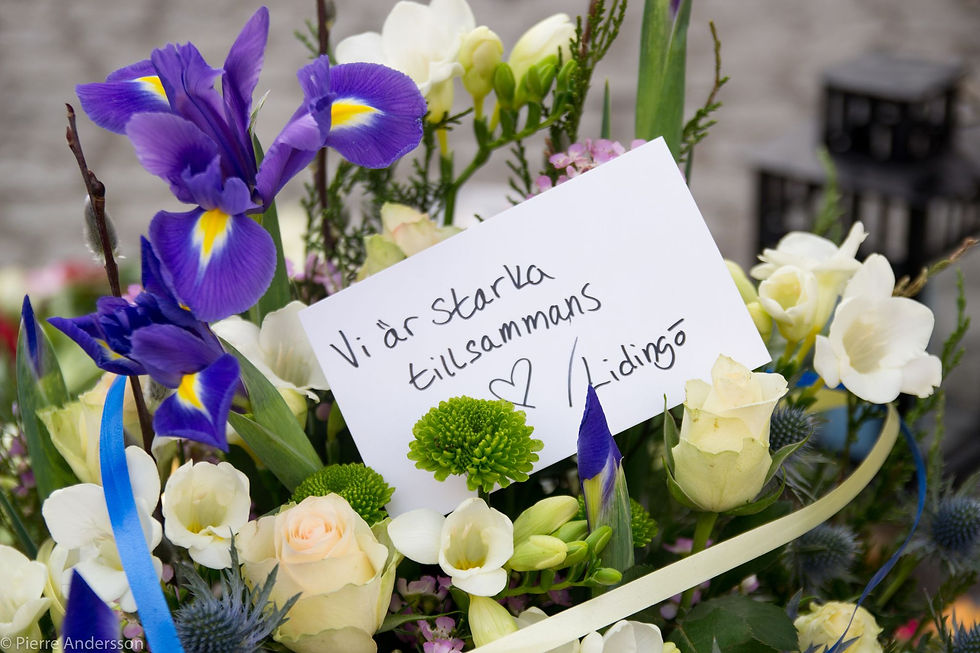 Vi är starka
tillsammans
♡ /Lidingö
© Pierre Andersson